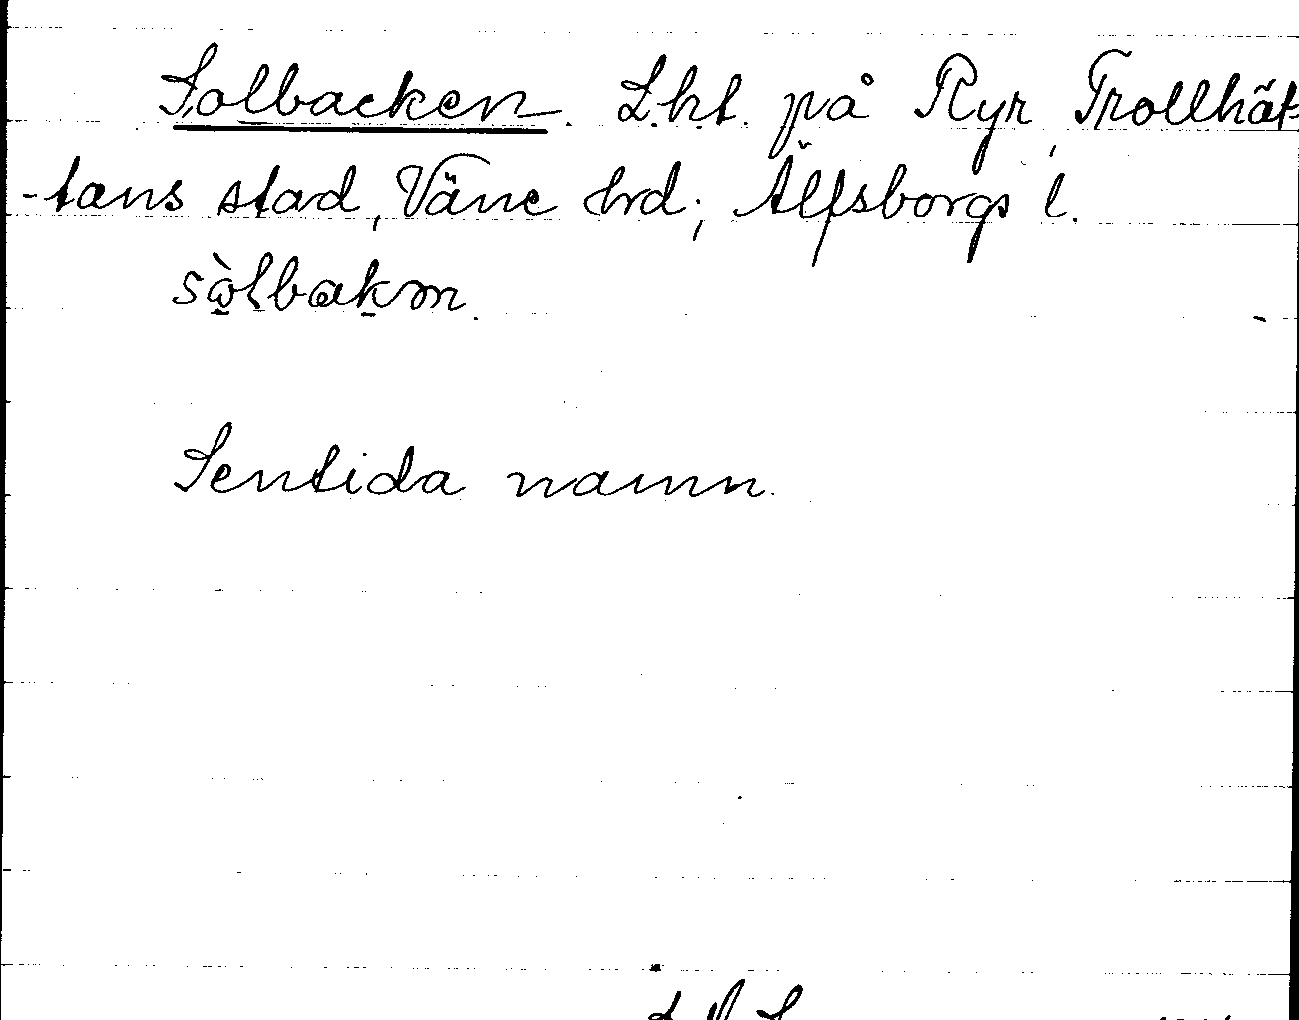 Solbacken. Lht. på Ryr, Trollhät-
-tans stad, Väne hrd; Älfsborgs l.
sòlbakm.
Sentida namn.